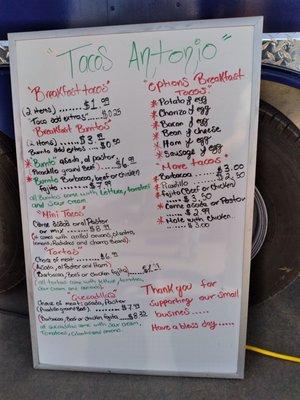 Tacos Antonio
"Breakfast tacos"
(2 items) ........ $1.99
Taco add extras ...... $0.25
"Breakfast Burritos"
(2 items) ..... $3.
Burrito add extras ..... $0.50
*Burrito asada, al pastor
Picadillo ground Beef) ..... $6.99
*Burrito Barbacoa, beef or chicken
fajita ....... $7.99
all Burritos come with lettuce, tomatoes
and sour cream.
"Mini Tacos"
Carne asada al Pastor
or mix .....
(4 comes with grilled onions, cilantro,
"Tortas"
Choice of meat ..... $6.
(Asada, al Pastor and Ham)
(Barbacoa, Beef or chicken fajita)
all tortas come with lettuce, tomatoes,
sour cream and
"Quesadillas"
Choice of meat: asada, Pastor
(Picadillo ground Beef) ...... $7.99
(Barbacoa, Beef or chicken fajita .... $8.
all quesadillas come with sour cream,
Tomatoes, and onions.
"Options Breakfast
Tacos"
*Potato & egg
*Chorizo & egg
*Bacon & egg
*Bean & cheese
*Ham & egg
*Sausage & egg
"More tacos"
*Barbacoa ...... $3.00
*Picadillo ..... $2.50
*fajita (Beef or chicken)
..... $3.50
*Carne asada or Pastor
..... $2.99
*Mole with chicken
..... $3.00
Thank you for
supporting our small
busines .....
Have a bless day .....